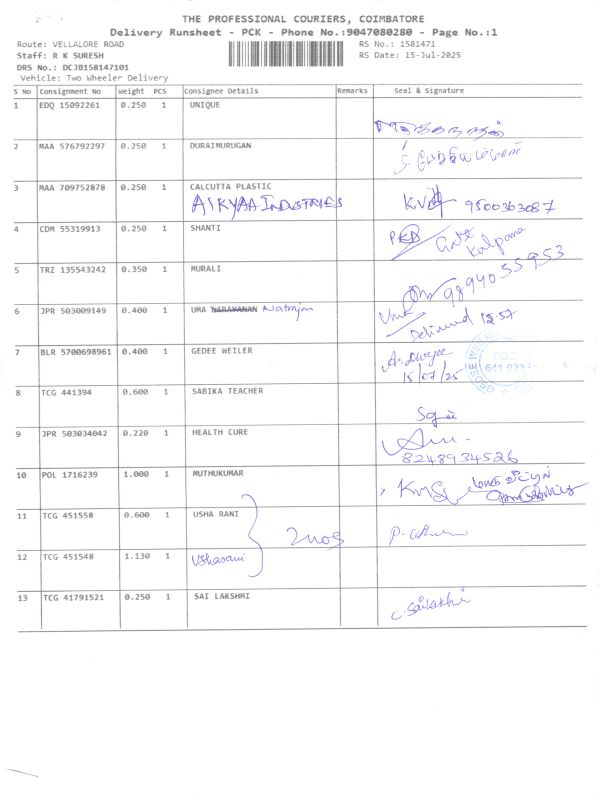 THE PROFESSIONAL COURIERS, COIMBATORE
Delivery Runsheet - PCK - Phone No.:9047080280 - Page No.:1
Route: VELLALORE ROAD RS No.: 1581471
Staff: R K SURESH RS Date: 15-Jul-2025
DRS No.: DCJB158147101
Vehicle: Two Wheeler Delivery
S No Consignment No Weight PCS Consignee Details Remarks Seal & Signature
1 EDQ 15092261 0.250 1 UNIQUE
2 MAA 576792297 0.250 1 DURAIMURUGAN
3 MAA 709752878 0.250 1 CALCUTTA PLASTIC
INDUSTRIES 9500363087
4 CDM 55319913 0.250 1 SHANTI
Gate
Kalpana
5 TRZ 135543242 0.350 1 MURALI
9894055953
6 JPR 503009149 0.400 1 UMA NARAYANAN Natrajan
Uma
Delivered 12:57
7 BLR 5700698961 0.400 1 GEDEE WEILER
15/07/25
8 TCG 441394 0.600 1 SABIKA TEACHER
9 JPR 503034042 0.220 1 HEALTH CURE
8248934526
10 POL 1716239 1.000 1 MUTHUKUMAR
11 TCG 451558 0.600 1 USHA RANI
2nos
12 TCG 451548 1.130 1 Usharani
13 TCG 41791521 0.250 1 SAI LAKSHMI
C. Sailakshi